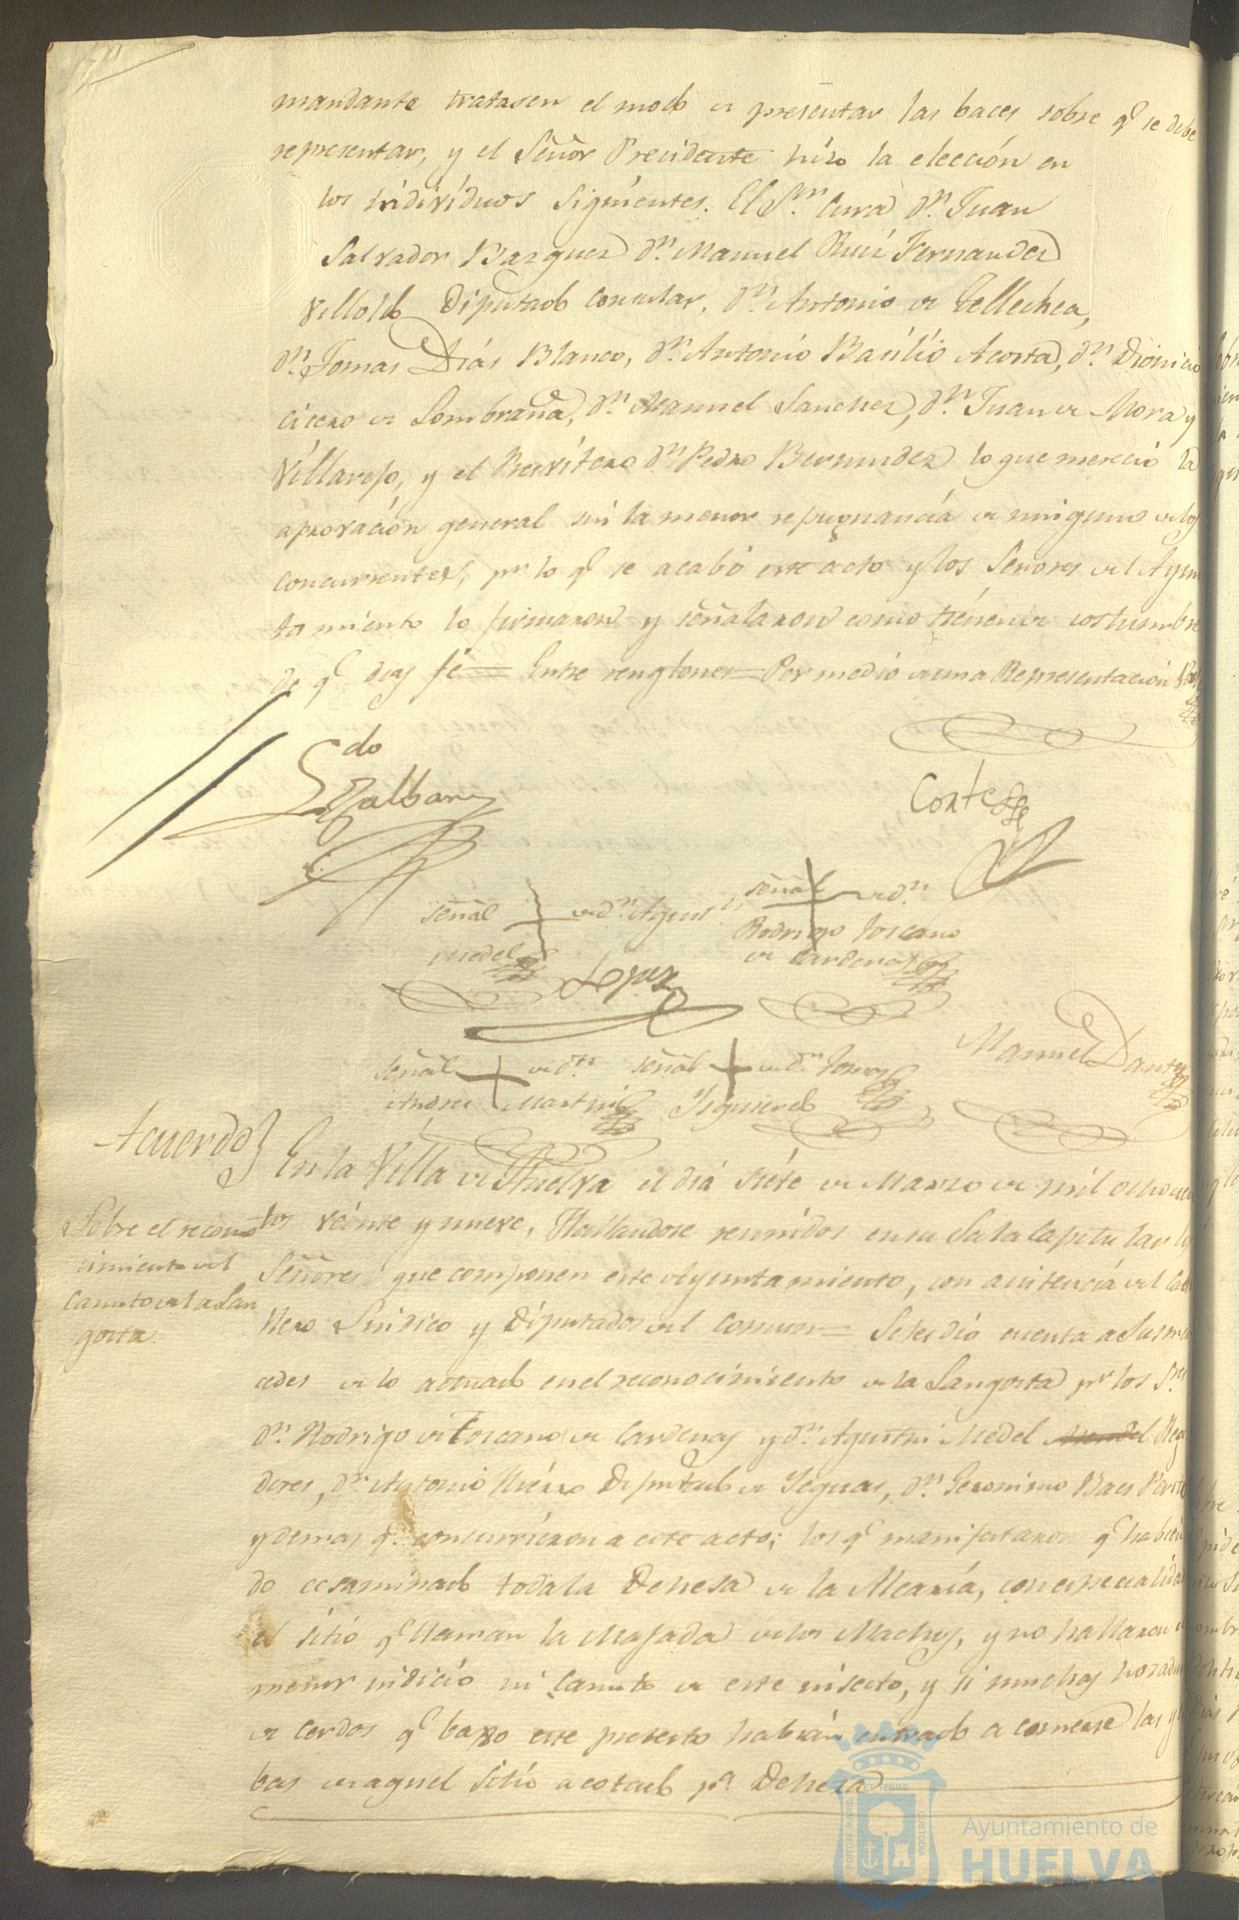 mandante tratasen el modo de presentar las baces sobre qe se debe
representar, y el Señor Precidente hizo la elección en
los individuos siguientes. El Sor. Cura dn. Juan
Salvador Bazquez dn. Manuel Ruiz Fernandez
Villoldo Diputado Consular, dn. Antonio de Tellechea,
dn. Tomas Dias Blanco, dn. Antonio Basilio Acosta, dn. Dionicio
Cicero de Lombraña, dn. Manuel Sanchez, dn. Juan de Mora y
Villarejo, y el Presvitero dn. Pedro Bermudez lo que mereció la
aprovación general sin la menor repugnancia de ninguno de los
concurrentes, pr. lo qe se acabó este acto y los Señores del Ayun
tamiento lo firmaron y señalaron como tienen de costumbre
de qe doy fé = Entre renglones = Por medio de una Representación
Cortes
señal de dn. Agustin
Medel
señal de dn.
Rodrigo Toscano
de Cardenas
Lopez
señal de dn.
Andres Martin
señal de dn. Tomas
Izquierdo
Manuel Dante
Acuerdo
Sobre el recono
cimiento del
Canuto de la Lan
gosta.
En la Villa de Huelva el dia siete de Marzo de mil ochocien
tos veinte y nueve, Hallandose reunidos en su Sala Capitular los
Señores que componen este Ayuntamiento, con acistencia del Cava
llero Sindico y Diputados del Comun = Se les dió cuenta a Sus mer
cedes de lo actuado en el reconocimiento de la Langosta pr. los Sres.
dn. Rodrigo de Toscano de Cardenas y dn. Agustin Medel Regi
dores, dn. Antonio Hierro Diputado de Yeguas, dn. Geronimo Baes Perito
y demas qe. concurrieron a este acto; los qe manifestaron qe habien
do ecsaminado toda la Dehesa de la Alcaria, con especialidad
el sitio qe llaman la Majada de los Machos, y no hallaron el
menor indicio ni Canuto de este insecto, y si muchas hozadas
de cerdos qe baxo este pretexto habian entrado a comerse las yer
bas de aquel sitio acotado pa. Dehesa
PORTUS MARIS ET TERRAE CUSTODIA
Ayuntamiento de
HUELVA